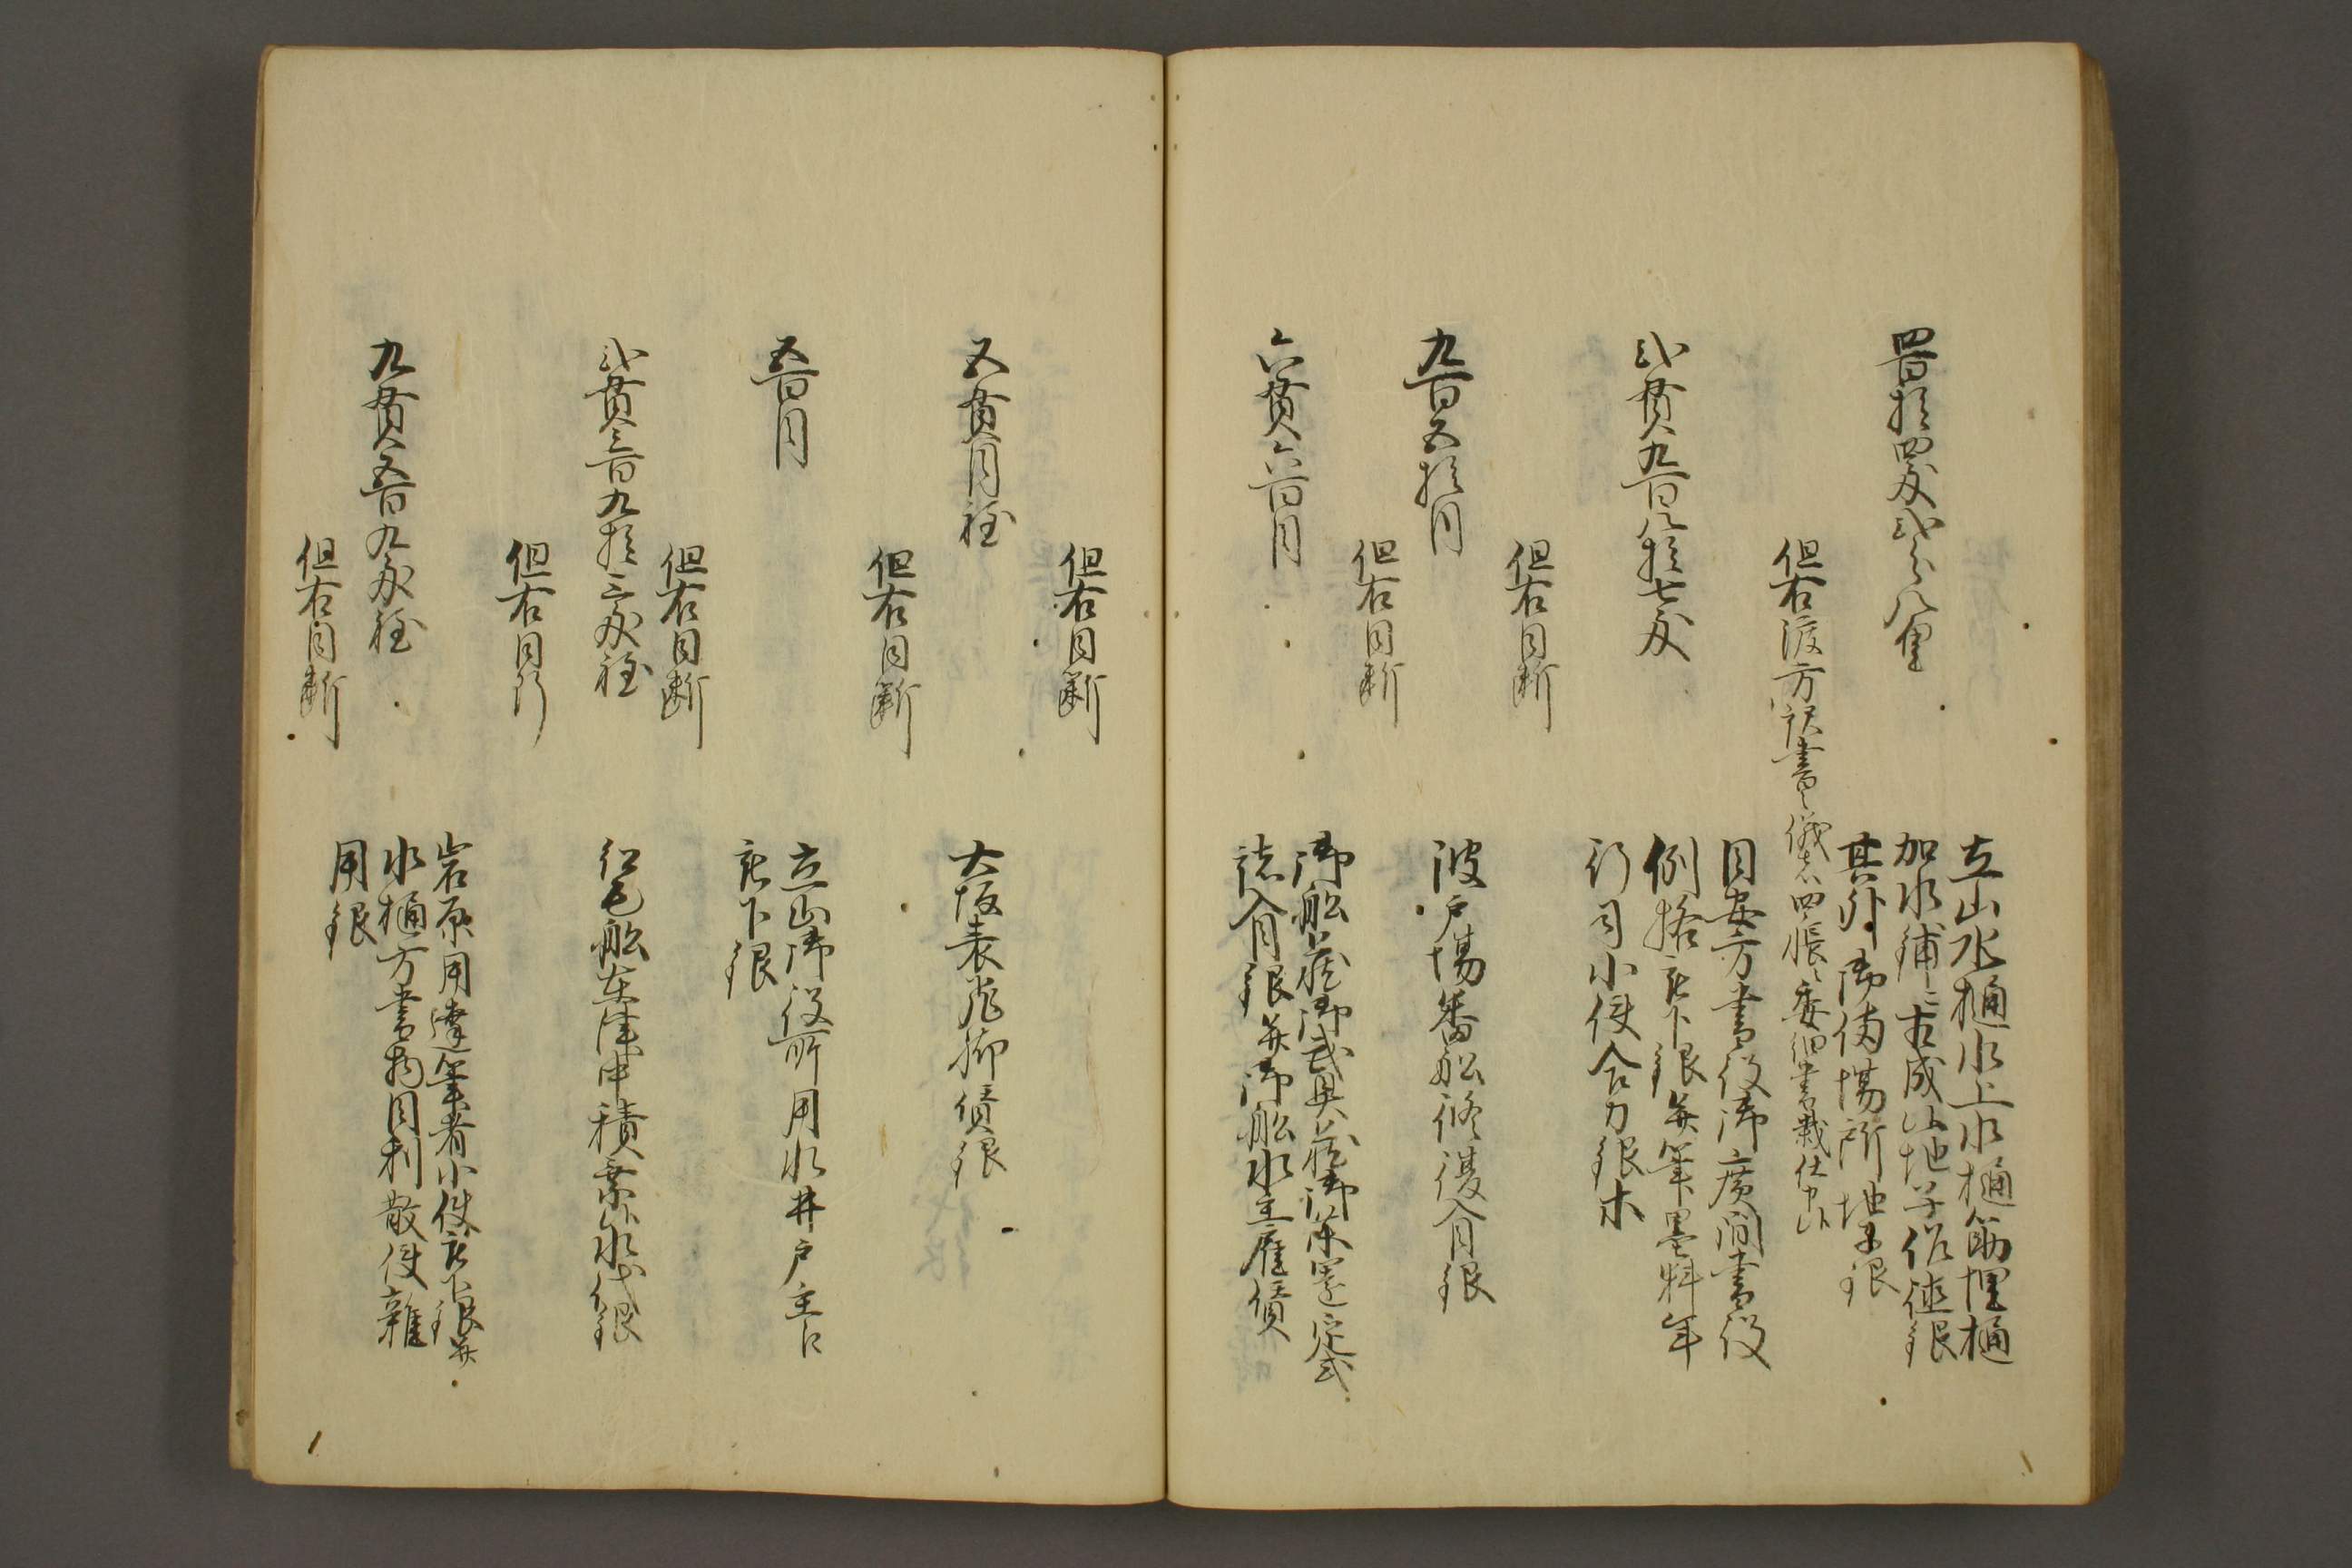 四百拾四匁弐分八厘
立山水樋水上水樋筋埋樋
加水鋪ニ古成候地子作徳銀
其外御備場所地子銀
但右渡方訳書之儀者四帳ニ委細書載仕申候
弐貫九百八拾七匁
目安方書役御広間書役
例格被下銀并筆墨料年
行司小使合力銀木
但右同断
九百五拾目
波戸場番船修復入目銀
但右同断
六貫六百目
御船蔵御武具蔵御深堀定式
諸入目銀并御船水主雇賃
但右同断
五貫目程
大坂表飛脚賃銀
但右同断
五百目
立山御役所用水井戸主江
被下銀
但右同断
弐貫三百九拾三匁程
紅毛船在津中積乗水代銀
但右同断
九貫五百九匁程
岩原用達筆者小使被下銀并
水樋方書物目利散使雑
用銀
但右同断